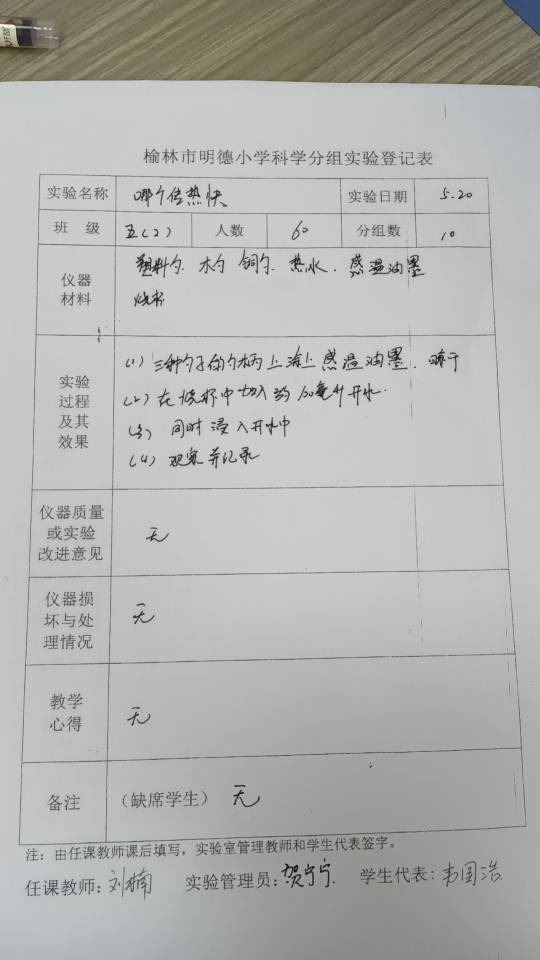 榆林市明德小学科学分组实验登记表
实验名称 哪个传热快 实验日期 5.20
班 级 五(2) 人数 60 分组数 10
仪器材料 塑料勺. 木勺 铜勺. 热水. 感温油墨
烧杯
实验过程及其效果 (1) 三种勺子的勺柄上涂上感温油墨. 晾干
(2) 在烧杯中加入约100毫升开水.
(3) 同时浸入开水中
(4) 观察并记录
仪器质量或实验改进意见 无
仪器损坏与处理情况 无
教学心得 无
备注 (缺席学生) 无
注：由任课教师课后填写，实验室管理教师和学生代表签字。
任课教师：刘楠 实验管理员：贺宁宁. 学生代表：韦国浩